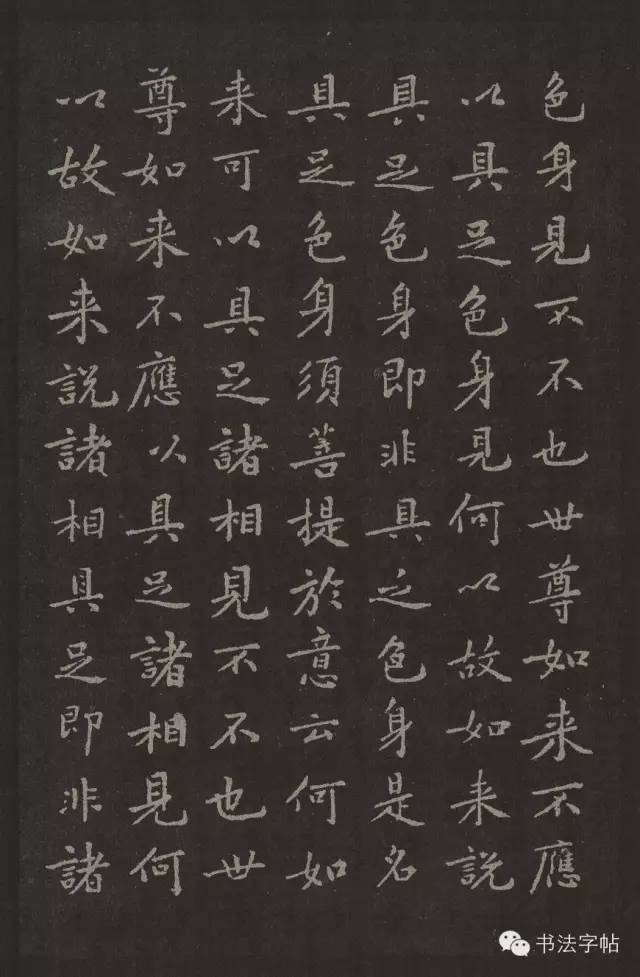 色身見不不也世尊如来不應
以具足色身見何以故如来說
具足色身即非具足色身是名
具足色身須菩提於意云何如
来可以具足諸相見不不也世
尊如来不應以具足諸相見何
以故如来說諸相具足即非諸
书法字帖